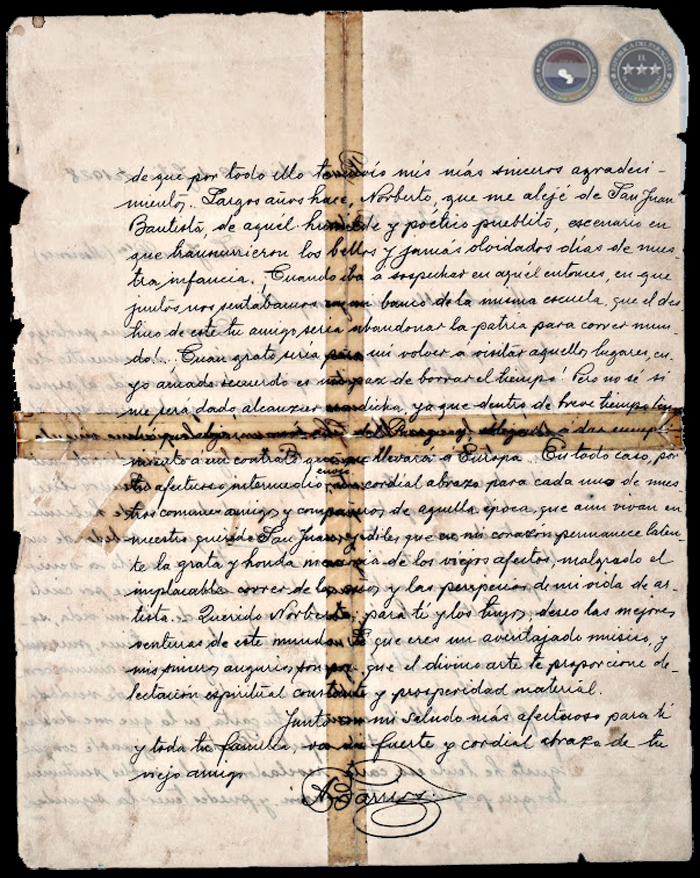 de que por todo ello te envío mis más sinceros agradeci-
mientos. Largos años hace, Norberto, que me alejé de San Juan
Bautista, de aquél humilde y poético pueblito, escenario en
que transcurrieron los bellos y jamás olvidados días de nues-
tra infancia. ¡Cuando iba a sospechar en aquél entonces, en que
juntos nos sentabamos en un banco de la misma escuela, que el des-
tino de este tu amigo sería abandonar la patria para correr mun-
do!.. Cuan grato sería para mi volver a visitar aquellos lugares, cu-
yo amado recuerdo es incapaz de borrar el tiempo! Pero no sé si
me será dado alcanzar esa dicha, ya que dentro de breve tiempo
a dar cumpli-
miento a un contrato que me llevará a Europa. En todo caso, por
tu afectuoso intermedio envio un cordial abrazo para cada uno de nues-
tros comunes amigos y compañeros de aquella época, que aun vivan en
nuestro querido San Juan, y diles que en mi corazón permanece laten-
te la grata y honda de los viejos afectos, malgrado el
implacable correr de los años y las peripecias de mi vida de ar-
tista. Querido Norberto: para tí y los tuyos, deseo las mejores
venturas de este mundo. Sé que eres un aventajado músico, y
mis sinceros augurios son que el divino arte te proporcione de-
lectación espiritual constante y prosperidad material.
Junto con mi saludo más afectuoso para tí
y toda tu familia, va un fuerte y cordial abrazo de tu
viejo amigo
A Barrios